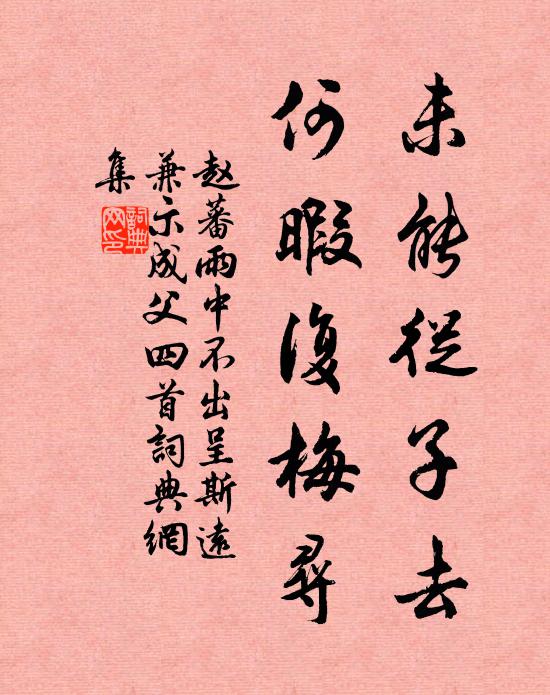 未能從子去
何暇復梅尋
赵蕃雨中不出呈斯遠
兼示成父四首詞典網
集
詞典网印